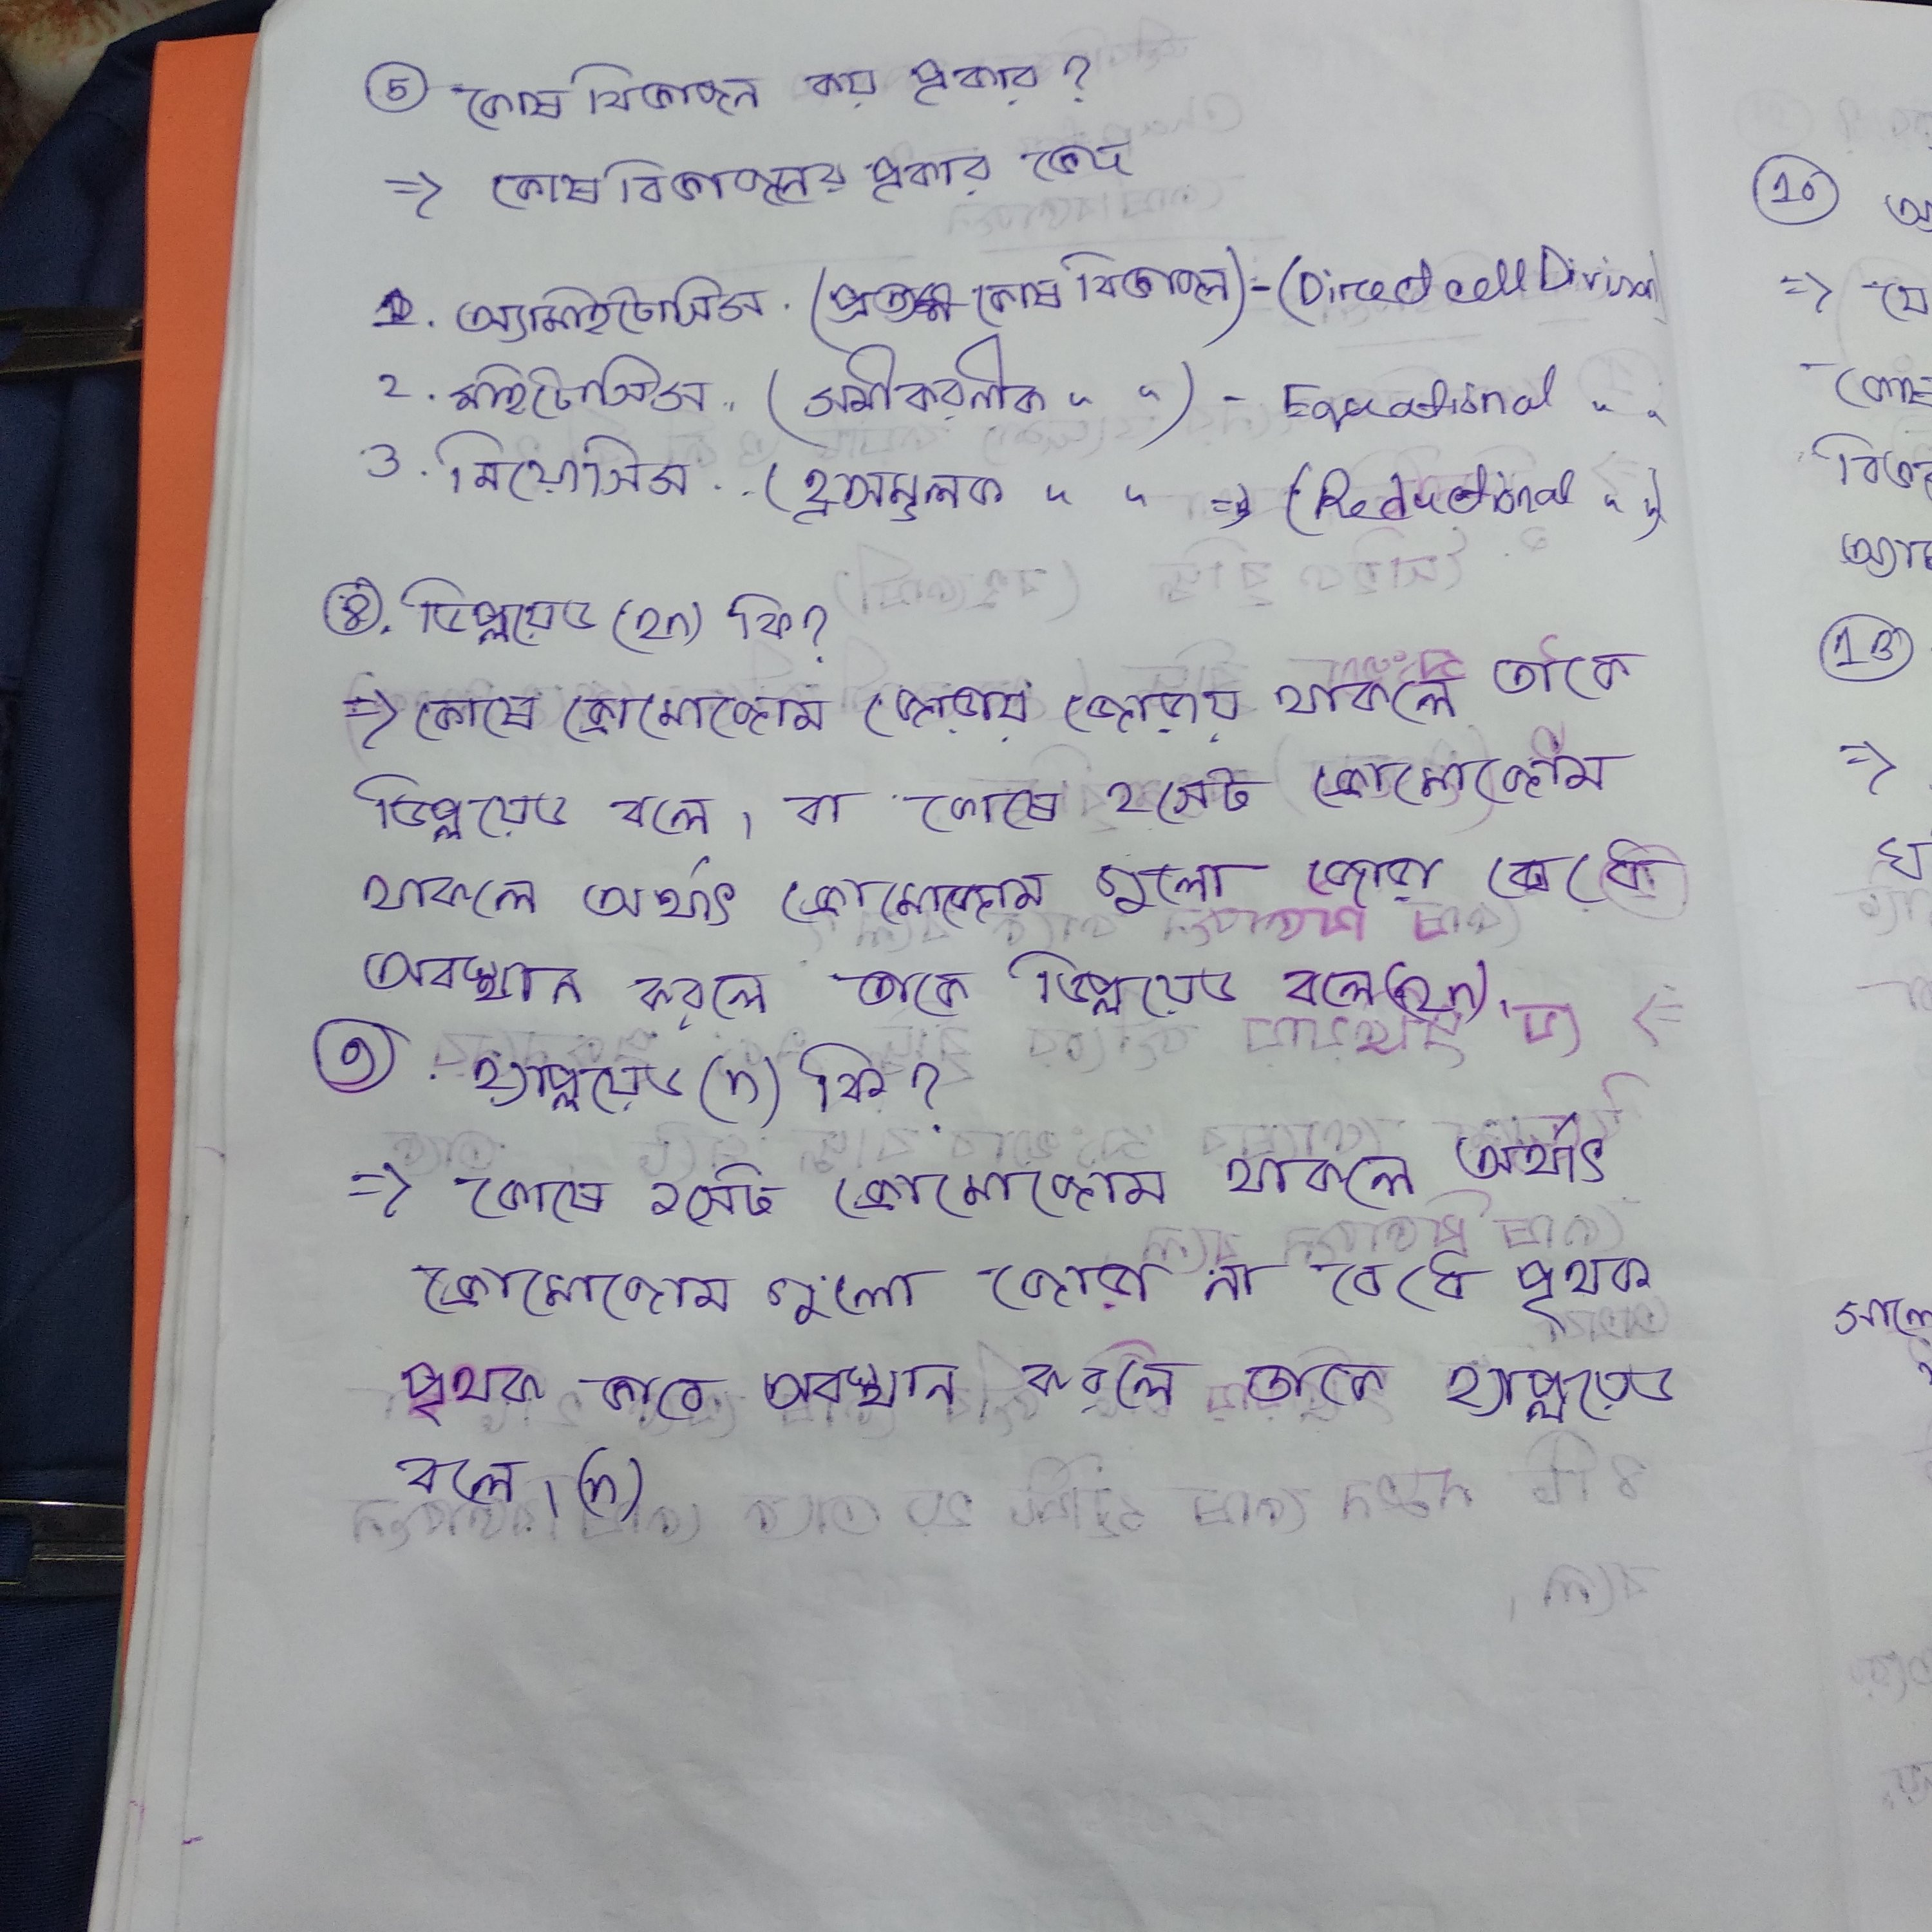 5 কোষ বিভাজন কয় প্রকার?
=> কোষ বিভাজনের প্রকার ভেদ
1. অ্যামাইটোসিস. (প্রত্যক্ষ কোষ বিভাজন) - (Direct cell Division)
2. মাইটোসিস.. (সমীকরনীক " ") - Equational " "
3. মিয়োসিস.. (হ্রাসমূলক " " => (Reductional " ")
8. ডিপ্লয়েড (2n) কি?
=> কোষে ক্রোমোজোম জোড়ায় জোড়ায় থাকলে তাকে
ডিপ্লয়েড বলে। বা কোষে ২সেট ক্রোমোজোম
থাকলে অর্থাৎ ক্রোমোজোম গুলো জোড়া বেধে
অবস্থান করলে তাকে ডিপ্লয়েড বলে (2n)।
9 হ্যাপ্লয়েড (n) কি?
=> কোষে ১সেট ক্রোমোজোম থাকলে অর্থাৎ
ক্রোমোজোম গুলো জোড়া না বেধে পৃথক
পৃথক ভাবে অবস্থান করলে তাকে হ্যাপ্লয়েড
বলে। (n)
10 অ
=> যে
কোষ
13
=>